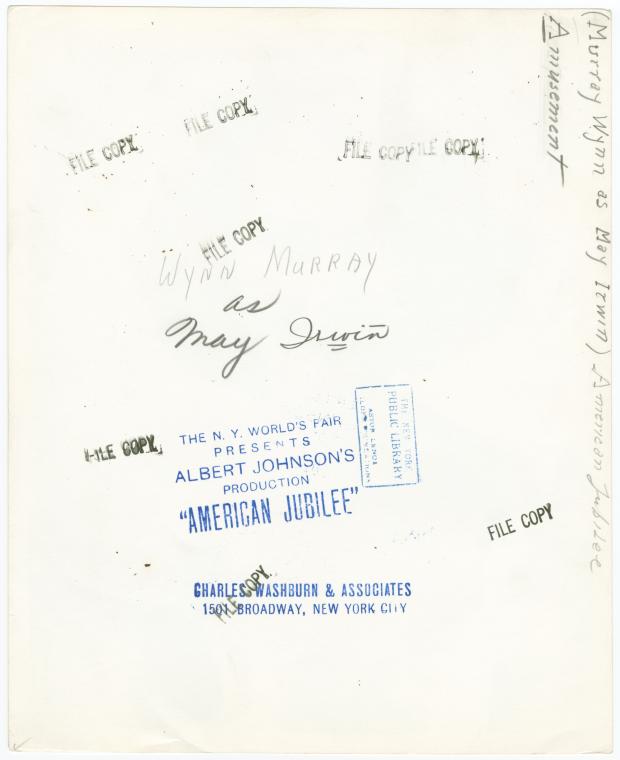 (Murray Wynn as May Irwin) American Jubilee
Amusement
FILE COPY
FILE COPY
FILE COPY FILE COPY
FILE COPY
WYNN MURRAY
as
May Irwin
THE NEW YORK
PUBLIC LIBRARY
ASTOR LENOX
THE N. Y. WORLD'S FAIR
PRESENTS
ALBERT JOHNSON'S
PRODUCTION
"AMERICAN JUBILEE"
FILE COPY
FILE COPY
FILE COPY
CHARLES WASHBURN & ASSOCIATES
1501 BROADWAY, NEW YORK CITY